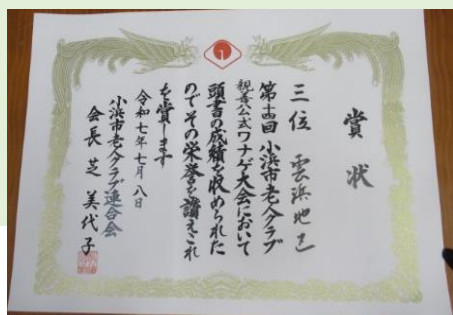 賞状
三位 雲浜地区
第十四回 小浜市老人クラブ
親善公式ワナゲ大会において
頭書の成績を収められた
のでその栄誉を讃えこれ
を賞します
令和七年七月八日
小浜市老人クラブ連合会
会長 芝 美代子